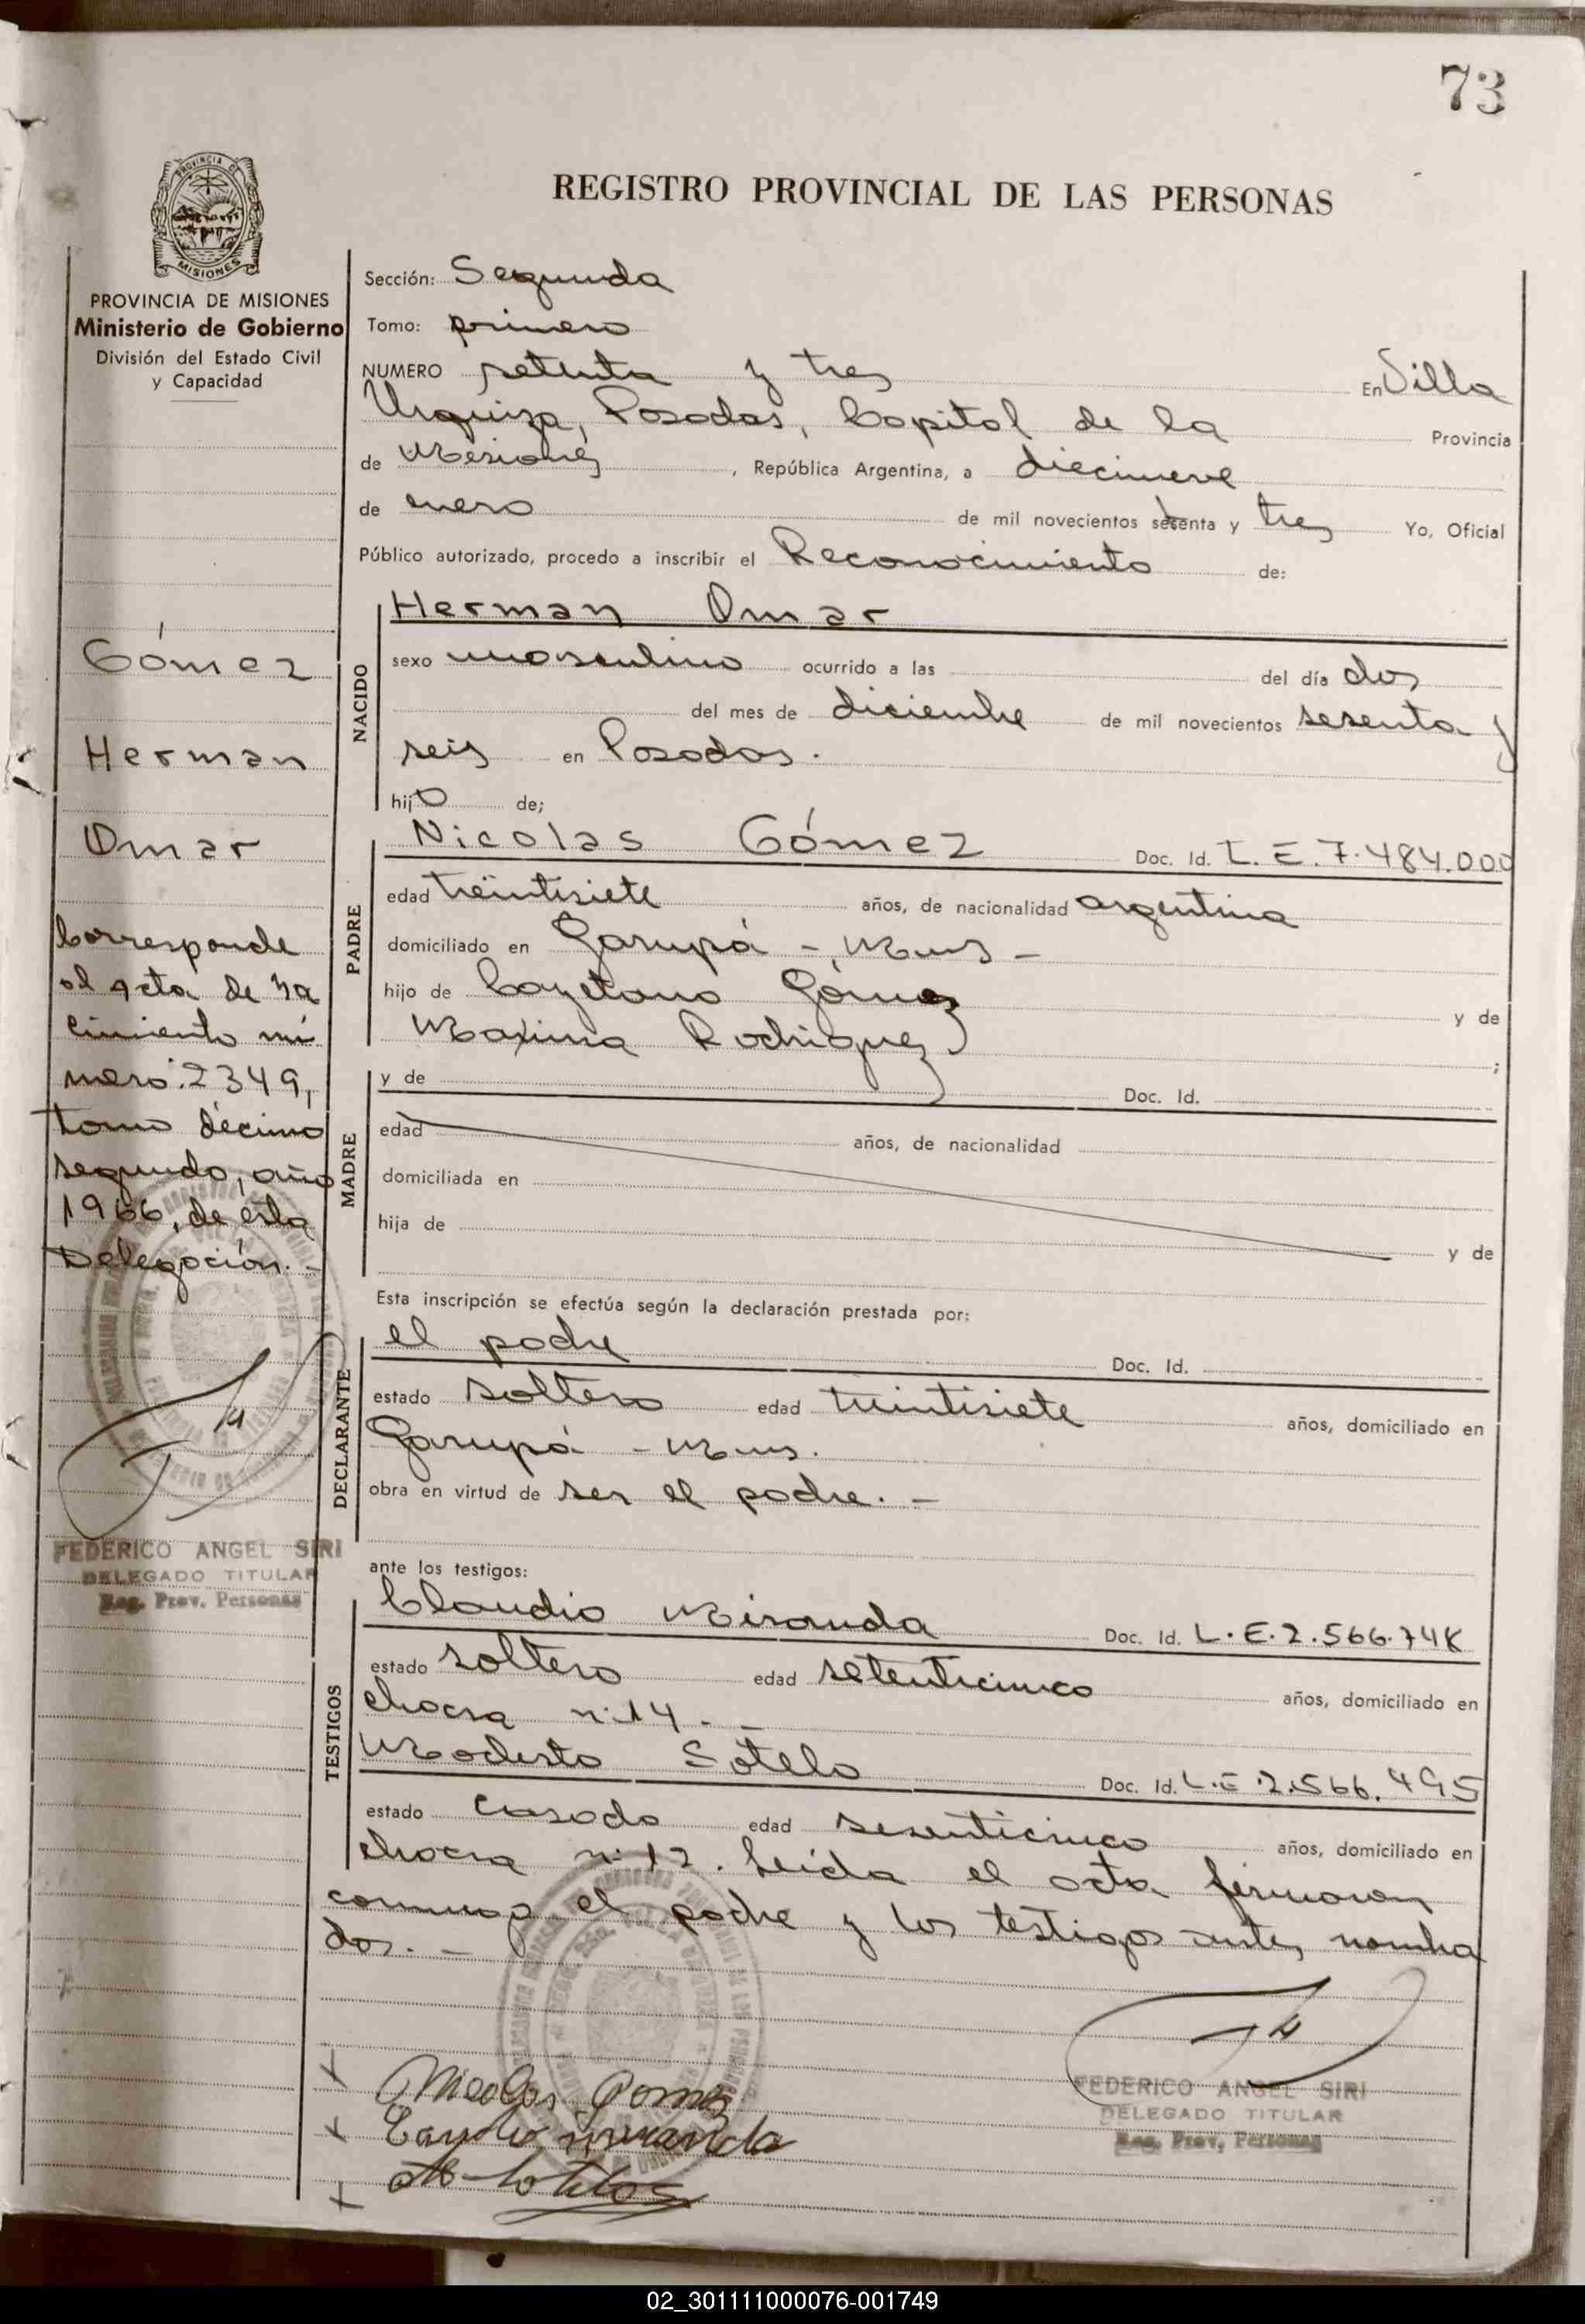 73
REGISTRO PROVINCIAL DE LAS PERSONAS
PROVINCIA DE MISIONES
Ministerio de Gobierno
División del Estado Civil
y Capacidad
Gómez
Herman
Omar
Corresponde
al acta de na
cimiento nú
mero: 2349,
tomo décimo
segundo, año
1966, de esta
Delegación. -
FEDERICO ANGEL SIRI
DELEGADO TITULAR
Reg. Prov. Personas
Sección: Segunda
Tomo: primero
NUMERO setenta y tres En Villa
Urquiza, Posadas, Capital de la Provincia
de Misiones, República Argentina, a diecinueve
de enero de mil novecientos setenta y tres Yo, Oficial
Público autorizado, procedo a inscribir el Reconocimiento de:
NACIDO
Herman Omar
sexo masculino ocurrido a las del día dos
del mes de diciembre de mil novecientos sesenta y
seis en Posadas.
hijo de;
PADRE
Nicolas Gómez Doc. Id. L.E. 7.484.000
edad treintisiete años, de nacionalidad argentina
domiciliado en Garupá - Mnes -
hijo de Cayetano Gómez y de
Maxima Rodriguez ;
MADRE
y de Doc. Id.
edad años, de nacionalidad
domiciliada en
hija de y de
Esta inscripción se efectúa según la declaración prestada por:
DECLARANTE
el padre Doc. Id.
estado soltero edad treintisiete años, domiciliado en
Garupá - Mnes.
obra en virtud de ser el padre. -
ante los testigos:
TESTIGOS
Claudio Miranda Doc. Id. L.E. 2.566.748
estado soltero edad setenticinco años, domiciliado en
chacra n: 14. -
Modesto Sotelo Doc. Id. L.E. 2.566.495
estado casado edad sesenticinco años, domiciliado en
chacra n: 12. Leída el acta firmaron
conmigo el padre y los testigos antes nombra
dos. -
Nicolas Gomez
miranda
FEDERICO ANGEL SIRI
DELEGADO TITULAR
Reg. Prov. Personas
02_301111000076-001749